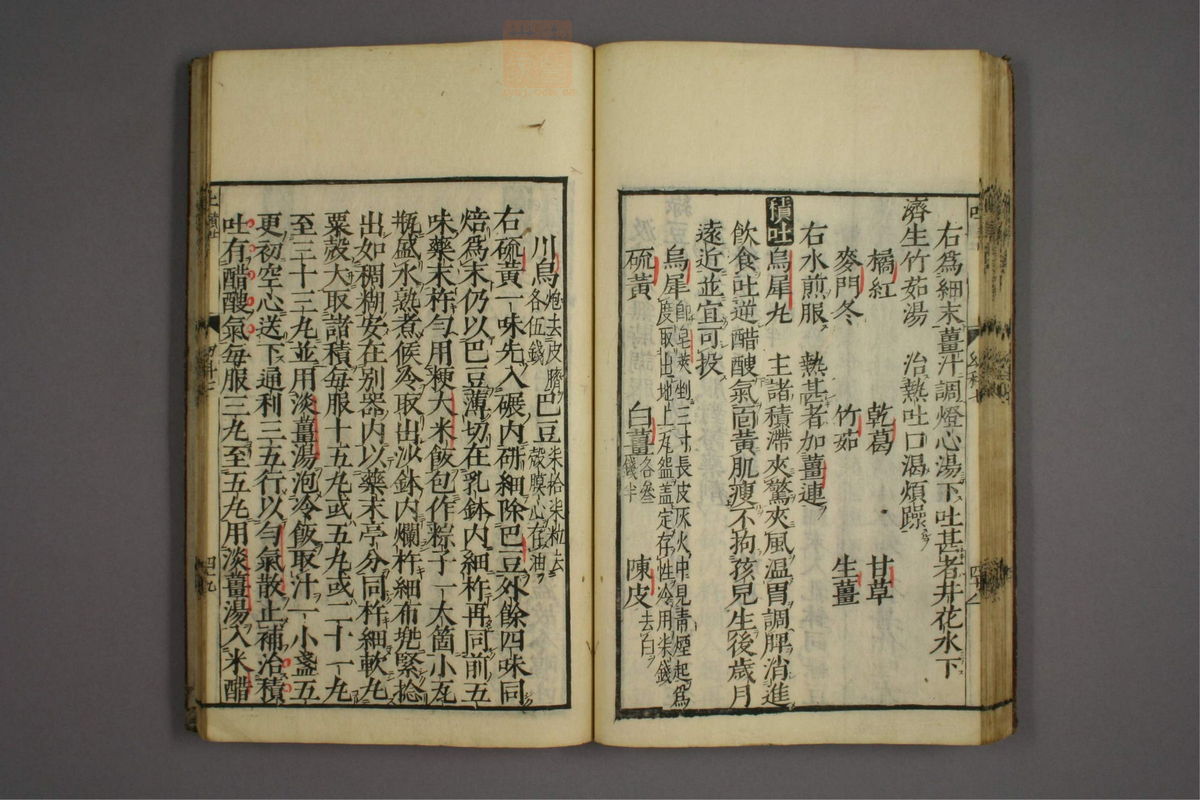 右爲細末薑汁調燈心湯下吐甚者井花水下
濟生竹茹湯　治熱吐口渴煩躁
橘紅　乾葛　甘草
麥門冬　竹茹　生薑
右水煎服　熱甚者加薑連
積吐　烏犀丸　主諸積滯夾驚夾風温胃調脾消進
飲食吐逆醋酸氣面黃肌瘦不拘孩兒生後歲月
遠近並宜可投
烏犀　即皂莢剉三寸長皮灰火中見青煙起爲
度取出地上瓦盆蓋定存性冷用柒錢
硫黃　白薑各叁錢半　陳皮去白
川烏炮去皮臍各伍錢　巴豆柒拾柒粒去殼膜心存油
右硫黃一味先入碾内研細除巴豆外餘四味同
焙爲末仍以巴豆薄切在乳鉢内細杵再同前五
味藥末杵勻用粳大米飯包作粽子一大箇小瓦
瓶盛水熟煮候冷取出沙鉢内爛杵細布兠緊捻
出如稠糊安在別器内以藥末亭分同杵細軟丸
粟殼大取諸積每服十五丸或五丸或二十一丸
至三十三丸並用淡薑湯泡冷飯取汁一小盞五
更初空心送下通利三五行以勻氣散止補冶積
吐有醋酸氣每服三丸至五丸用淡薑湯入米醋
四九